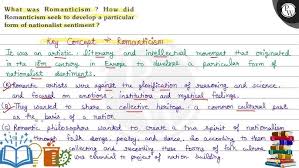 What was Romanticism ? How did
Romanticism seek to develop a particular
form of nationalist sentiment ?
Key Concept → Romanticism
It was an artistic, literary and intellectual movement that originated
in the 18th century in Europe to develop a particular form of
nationalist sentiments.
Romantic artists were against the glorification of reasoning and science,
and focused on emotions, institution and mystical feelings.
They wanted to share a collective heritage, a common cultural past
as the basis of a nation.
(c) Romantic philosophers wanted to create a true spirit of nationalism
through folk songs, poetry, and dance. So according to them
collecting and recording these forms of folk culture
was essential to project of nation building.